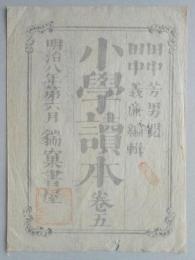 田中芳男閲
田中義廉編輯
小學讀本 巻五
明治八年第六月